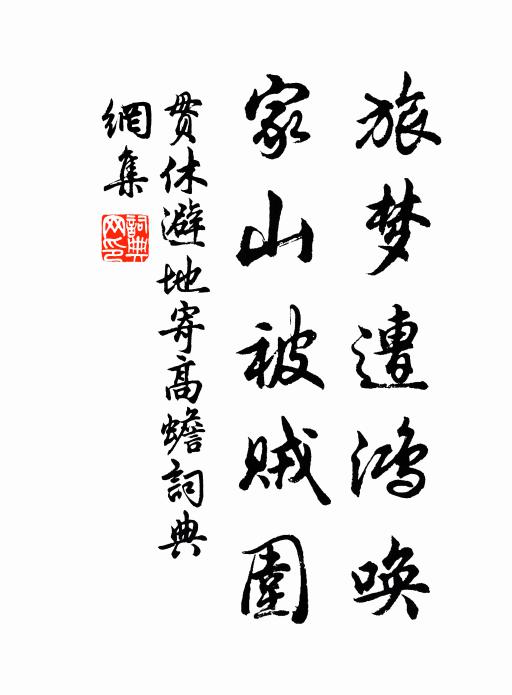 旅梦遭鸿唤
家山被贼围
贯休避地寄高蟾词典
網集
詞典网印